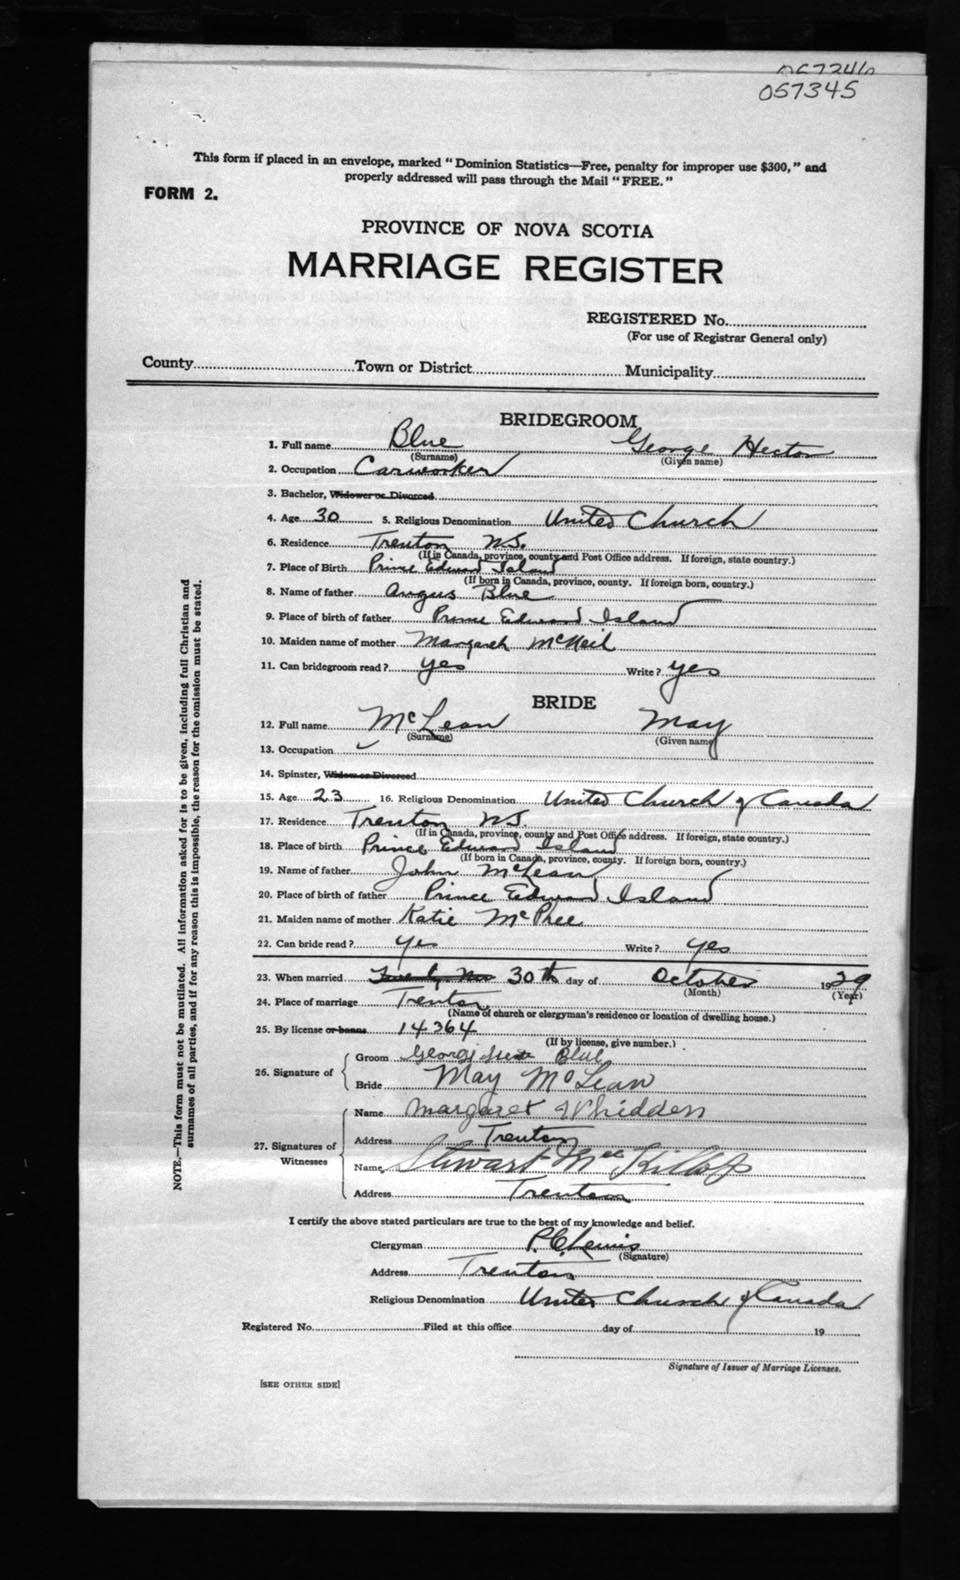 057345
This form if placed in an envelope, marked "Dominion Statistics—Free, penalty for improper use $300," and
properly addressed will pass through the Mail "FREE."
FORM 2.
PROVINCE OF NOVA SCOTIA
MARRIAGE REGISTER
REGISTERED No.
(For use of Registrar General only)
County Town or District Municipality
BRIDEGROOM
1. Full name Blue George Hector
(Surname) (Given name)
2. Occupation Carworker
3. Bachelor, Widower or Divorced.
4. Age 30 5. Religious Denomination United Church
6. Residence Trenton N.S.
(If in Canada, province, county and Post Office address. If foreign, state country.)
7. Place of Birth Prince Edward Island
(If born in Canada, province, county. If foreign born, country.)
8. Name of father Angus Blue
9. Place of birth of father Prince Edward Island
10. Maiden name of mother Margaret McNeil
11. Can bridegroom read? yes Write? yes
BRIDE
12. Full name McLean May
(Surname) (Given name)
13. Occupation
14. Spinster, Widow or Divorced
15. Age 23 16. Religious Denomination United Church of Canada
17. Residence Trenton N.S.
(If in Canada, province, county and Post Office address. If foreign, state country.)
18. Place of birth Prince Edward Island
(If born in Canada, province, county. If foreign born, country.)
19. Name of father John McLean
20. Place of birth of father Prince Edward Island
21. Maiden name of mother Katie McPhee
22. Can bride read? yes Write? yes
23. When married 30th day of October 1929
(Month) (Year)
24. Place of marriage Trenton
(Name of church or clergyman's residence or location of dwelling house.)
25. By license or banns 14364
(If by license, give number.)
26. Signature of
Groom George Blue
Bride May McLean
27. Signatures of
Witnesses
Name Margaret Whidden
Address Trenton
Name Stewart
Address Trenton
I certify the above stated particulars are true to the best of my knowledge and belief.
Clergyman P.C. Lewis
(Signature)
Address Trenton
Religious Denomination United Church of Canada
Registered No. Filed at this office day of 19
Signature of Issuer of Marriage Licenses.
[SEE OTHER SIDE]
NOTE.—This form must not be mutilated. All information asked for is to be given, including full Christian and
surnames of all parties, and if for any reason this is impossible, the reason for the omission must be stated.